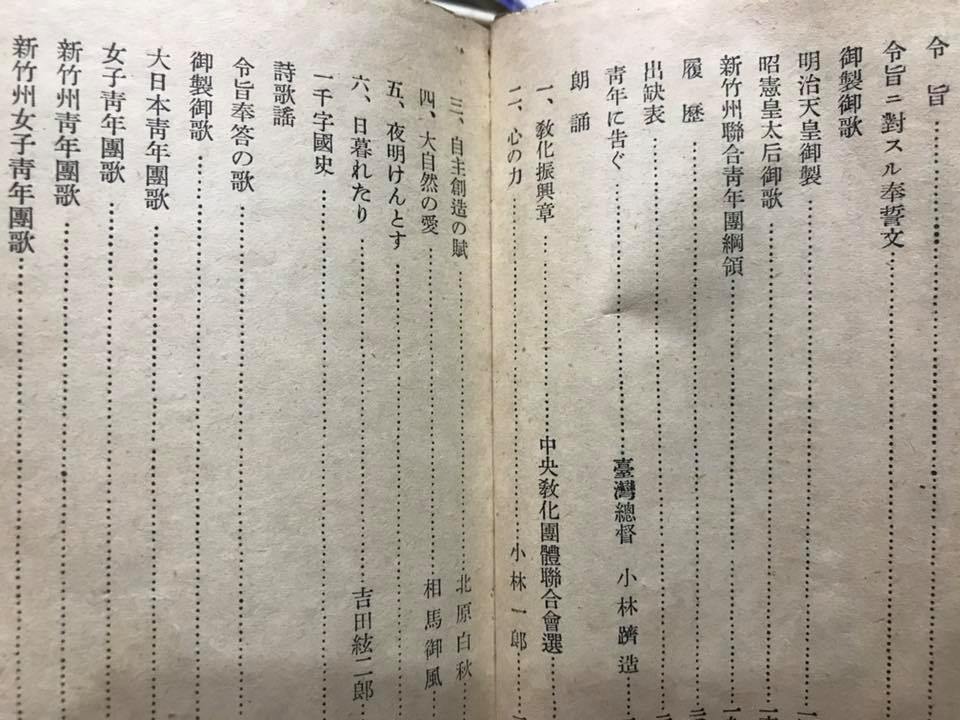 令旨
令旨ニ對スル奉誓文
御製御歌
明治天皇御製
昭憲皇太后御歌
新竹州聯合靑年團綱領
履歷
出缺表
靑年に吿ぐ 臺灣總督 小林躋造
朗誦
一、敎化振興章 中央敎化團體聯合會選
二、心の力 小林一郎
三、自主創造の賦 北原白秋
四、大自然の愛 相馬御風
五、夜明けんとす
六、日暮れたり 吉田絃二郎
一千字國史
詩歌謠
令旨奉答の歌
御製御歌
大日本靑年團歌
女子靑年團歌
新竹州靑年團歌
新竹州女子靑年團歌